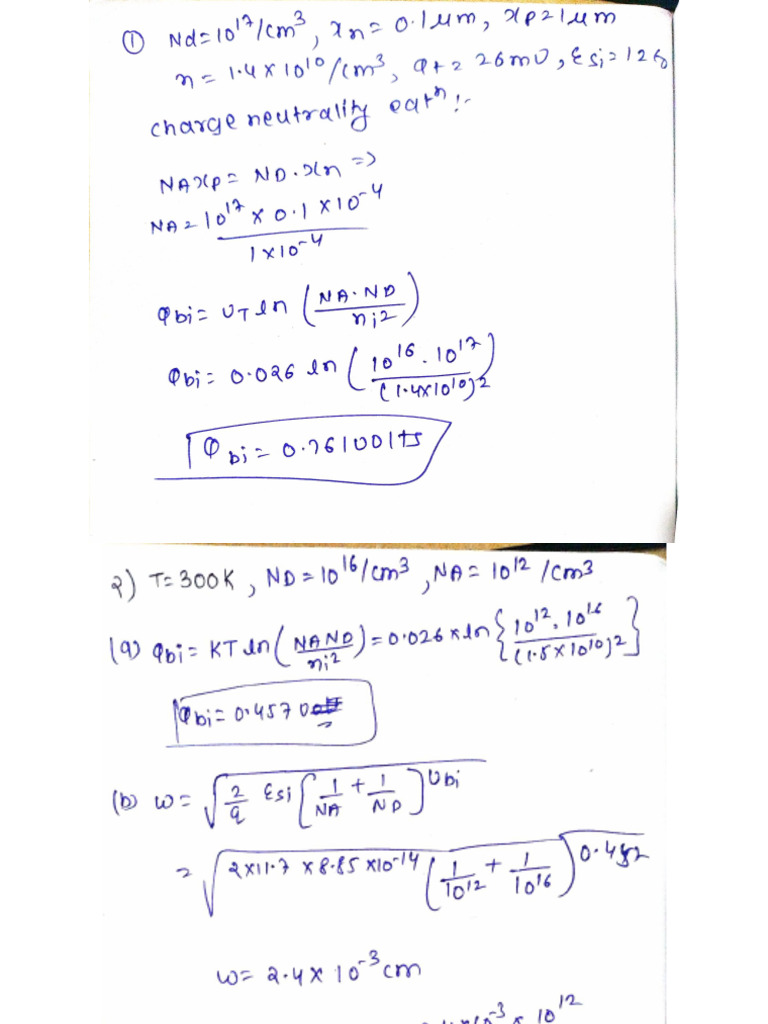 ① Nd=10¹⁷/cm³, xn= 0.1μm, xp=1μm
n= 1.4×10¹⁰/cm³, φt= 26mV, εsi=12ε
charge neutrality eatⁿ:-
NAxp= ND.xn =>
NA= 10¹⁷ × 0.1 ×10⁻⁴
1×10⁻⁴
φbi= VT ln (NA.ND / ni²)
φbi= 0.026 ln (10¹⁶.10¹⁷ / (1.4×10¹⁰)²)
φbi= 0.761Volts
2) T=300K, ND=10¹⁶/cm³, NA= 10¹² /cm³
(a) φbi= KT ln (NAND / ni²) = 0.026×ln {10¹².10¹⁶ / (1.5×10¹⁰)²}
φbi= 0.457
(b) w= √ 2/q εsi [1/NA + 1/ND] Vbi
= √ 2×11.7 ×8.85 ×10⁻¹⁴ (1/10¹² + 1/10¹⁶)
w= 2.4×10⁻³cm